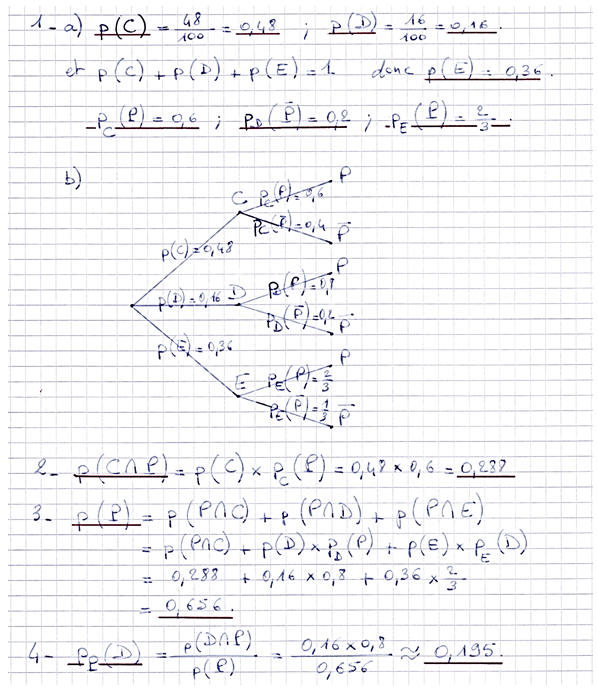 1- a) p(C) = 48/100 = 0,48 ; p(D) = 16/100 = 0,16.
et p(C) + p(D) + p(E) = 1. donc p(E) = 0,36.
p_C(P) = 0,6 ; p_D(P̄) = 0,2 ; p_E(P) = 2/3.
b)
C p_C(P) = 0,6 P
p_C(P̄) = 0,4 P̄
p(C) = 0,48
p(D) = 0,16 D p_D(P) = 0,8 P
p_D(P̄) = 0,2 P̄
p(E) = 0,36
E p_E(P) = 2/3 P
p_E(P̄) = 1/3 P̄
2- p(C∩P) = p(C) × p_C(P) = 0,48 × 0,6 = 0,288
3- p(P) = p(P∩C) + p(P∩D) + p(P∩E)
= p(P∩C) + p(D) × p_D(P) + p(E) × p_E(D)
= 0,288 + 0,16 × 0,8 + 0,36 × 2/3
= 0,656.
4- p_P(D) = p(D∩P)/p(P) = 0,16 × 0,8/0,656 ≈ 0,195.